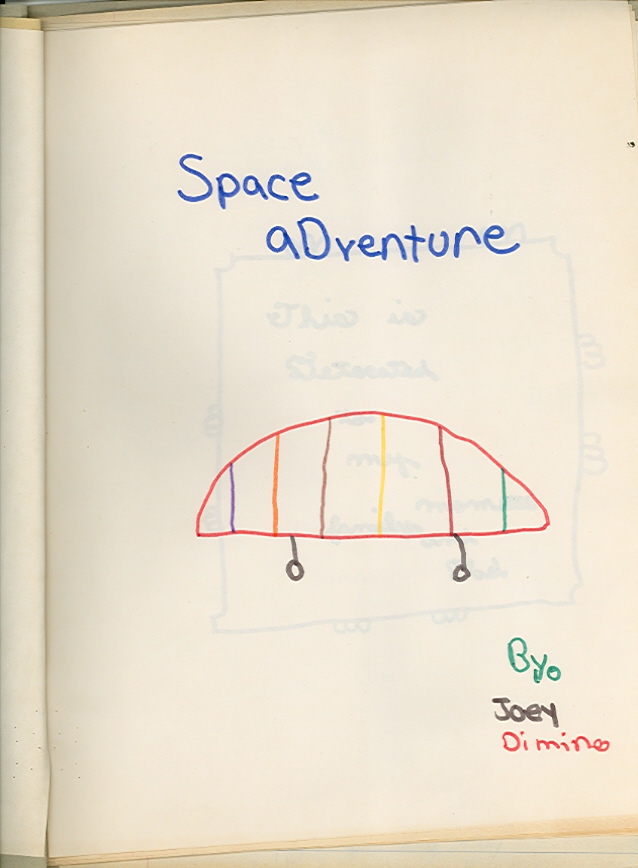 Space
aDventune
By.
Joey
Dimino